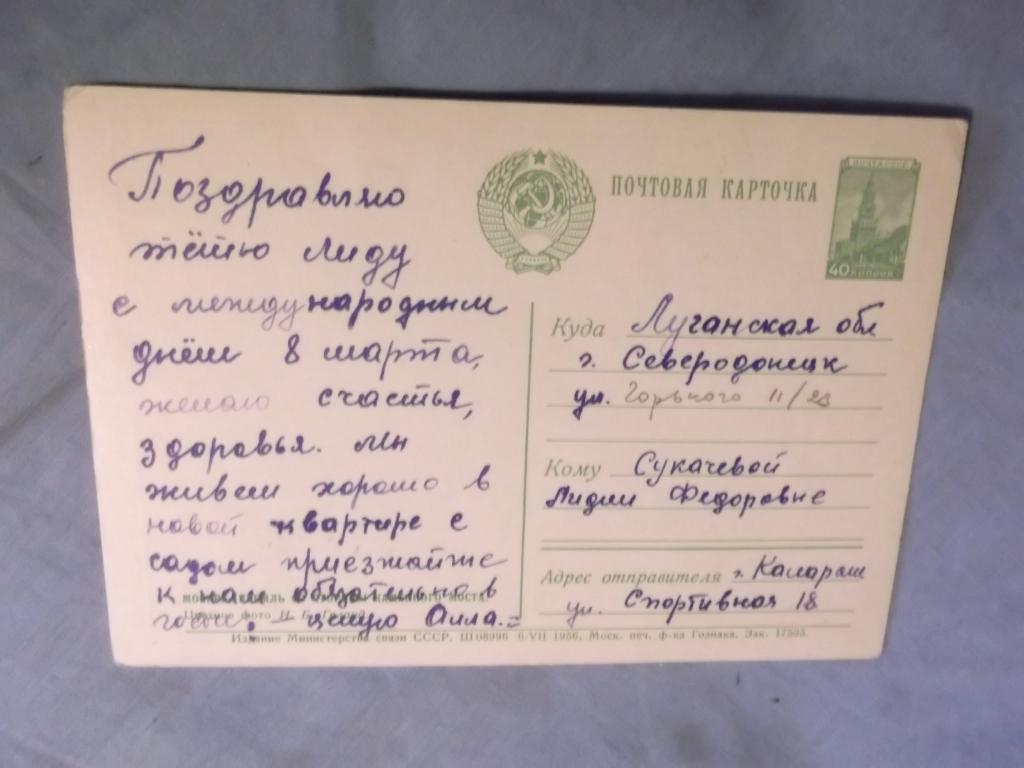 Поздравляю
тётю Лиду
с международным
днём 8 марта,
желаю счастья,
здоровья. мы
живем хорошо в
новой квартире с
садом приезжайте
к нам обязательно в
гости. целую Алла.=
МОСКВА КРЕМЛЬ МОСТА
Цветное фото Н.
Издание Министерства связи СССР. Ш 08996 6-VII 1956. Моск. печ. ф-ка Гознака. Зак. 17595.
ПОЧТОВАЯ КАРТОЧКА
ПОЧТА СССР
40 КОПЕЕК
Куда Луганская обл
г. Северодонецк
ул. Горького 11/23
Кому Сукачевой
Лидии Федоровне
Адрес отправителя г. Калараш
ул. Спортивная 18